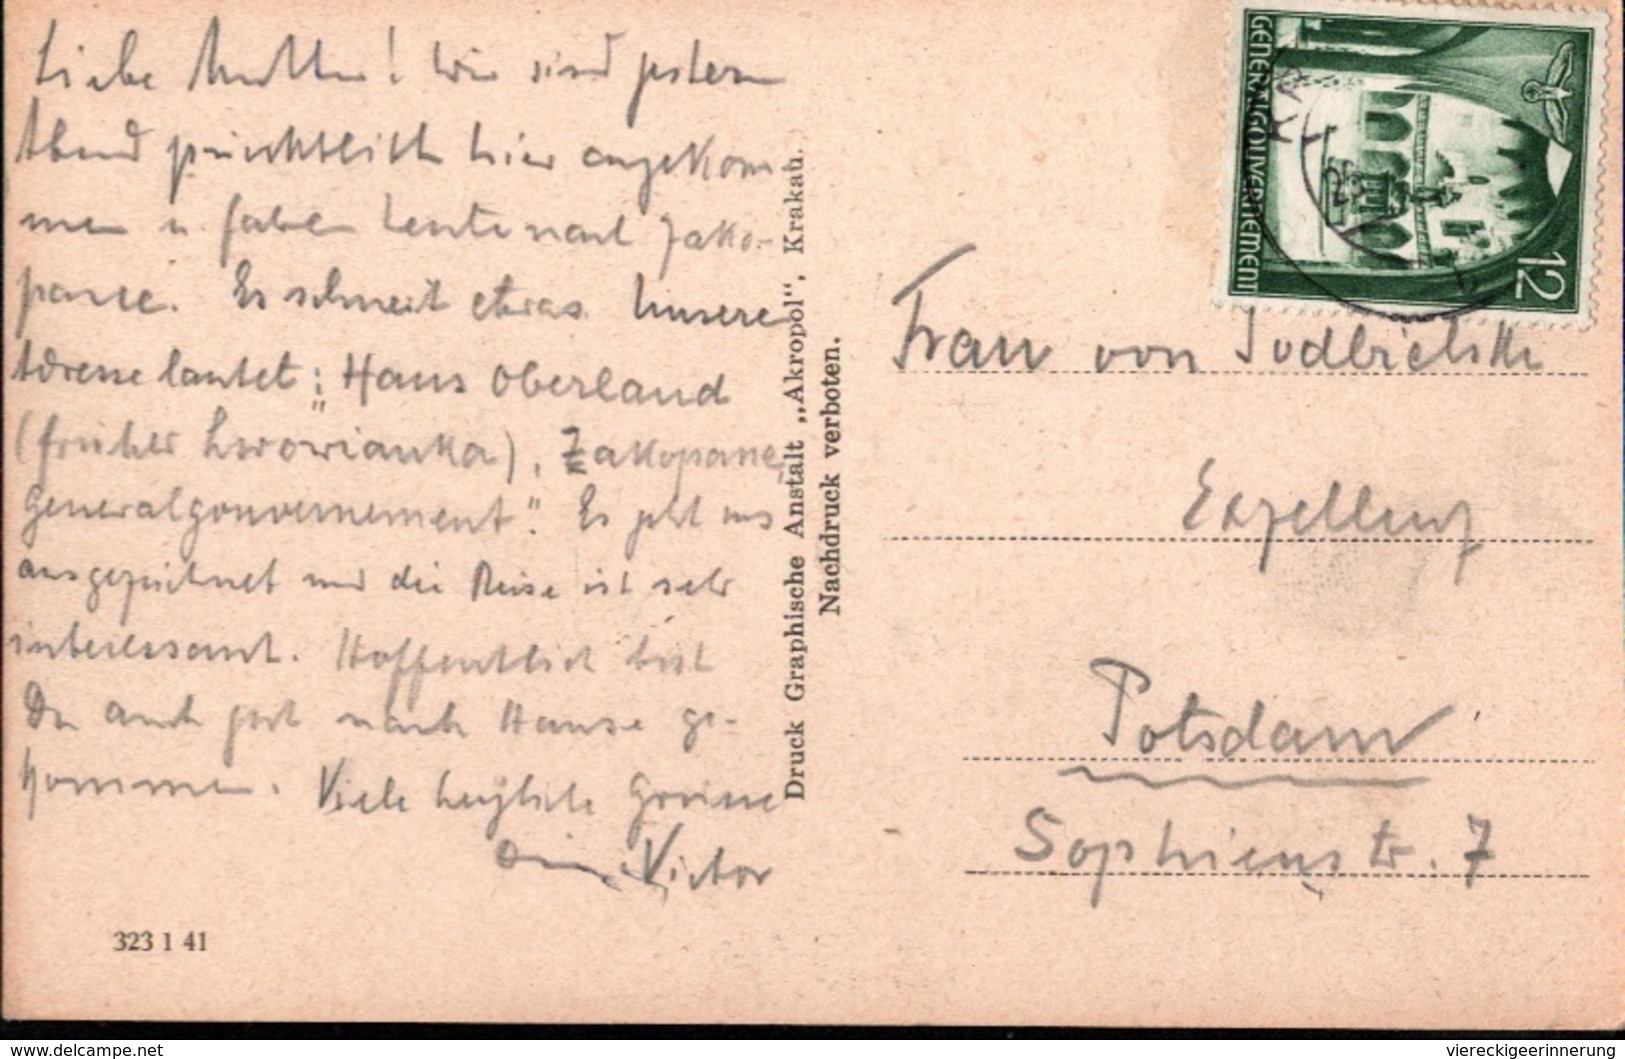 Liebe Mutter! Wir sind gestern
Abend pünktlich hier angekom
men u. fahren heute nach Zako-
pane. Es schneit etwas. Unsere
Adresse lautet: Haus Oberland
(früher Lwowianka), Zakopane,
Generalgouvernement". Es geht uns
ausgezeichnet und die Reise ist sehr
interessant. Hoffentlich bist
Du auch gut nach Hause ge-
kommen. Viele herzliche Grüsse
Dein Victor
323 1 41
Druck Graphische Anstalt „Akropol", Krakau.
Nachdruck verboten.
GENERALGOUVERNEMENT
12
Frau von Podbielski
Exzellenz
Potsdam
Sophienstr. 7
https://www.delcampe.net
viereckigeerinnerung